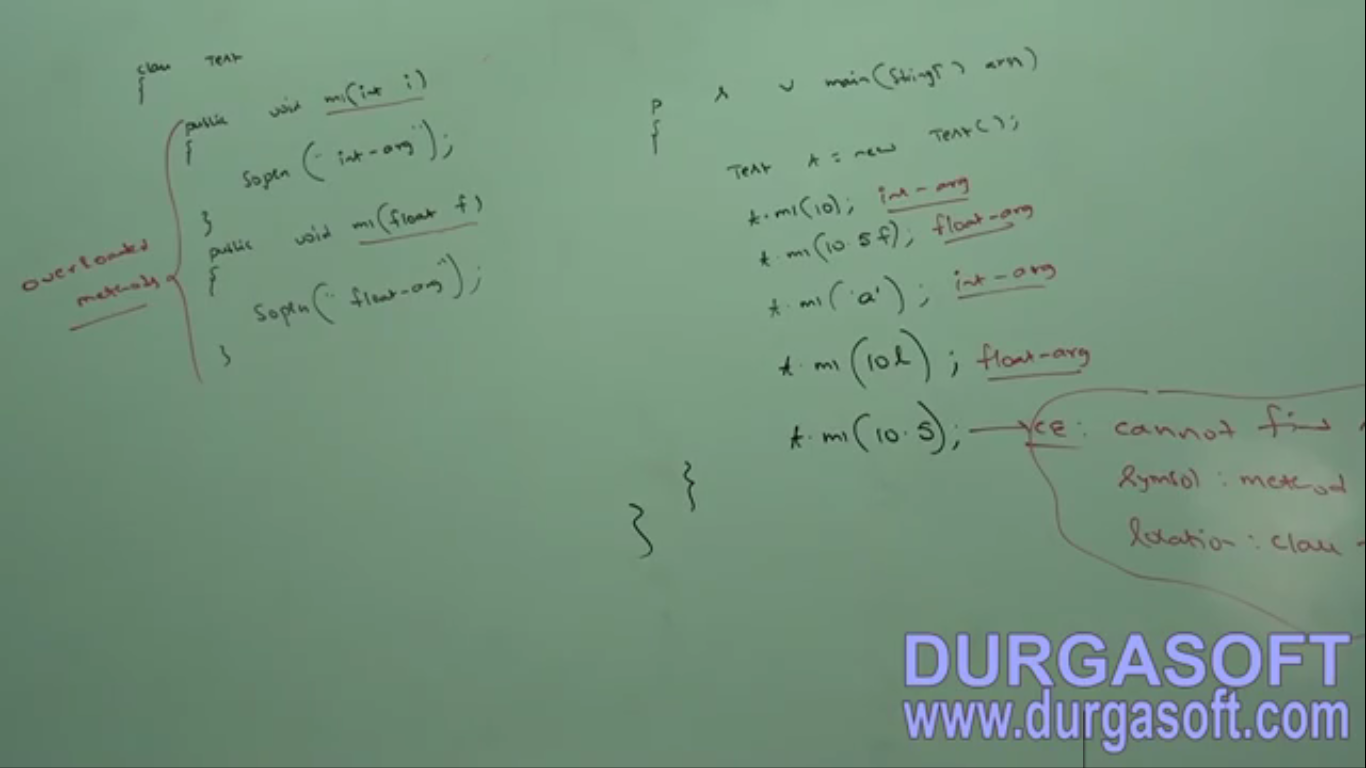 class Test
{
public void m1(int i)
{
Sopln("int-arg");
}
public void m1(float f)
{
Sopln("float-arg");
}
overloaded
methods
p s v main(String[] args)
{
Test t = new Test();
t.m1(10); int-arg
t.m1(10.5f); float-arg
t.m1('a'); int-arg
t.m1(10l); float-arg
t.m1(10.5); CE: cannot find
symbol: method
location: class
}
}
DURGASOFT
www.durgasoft.com